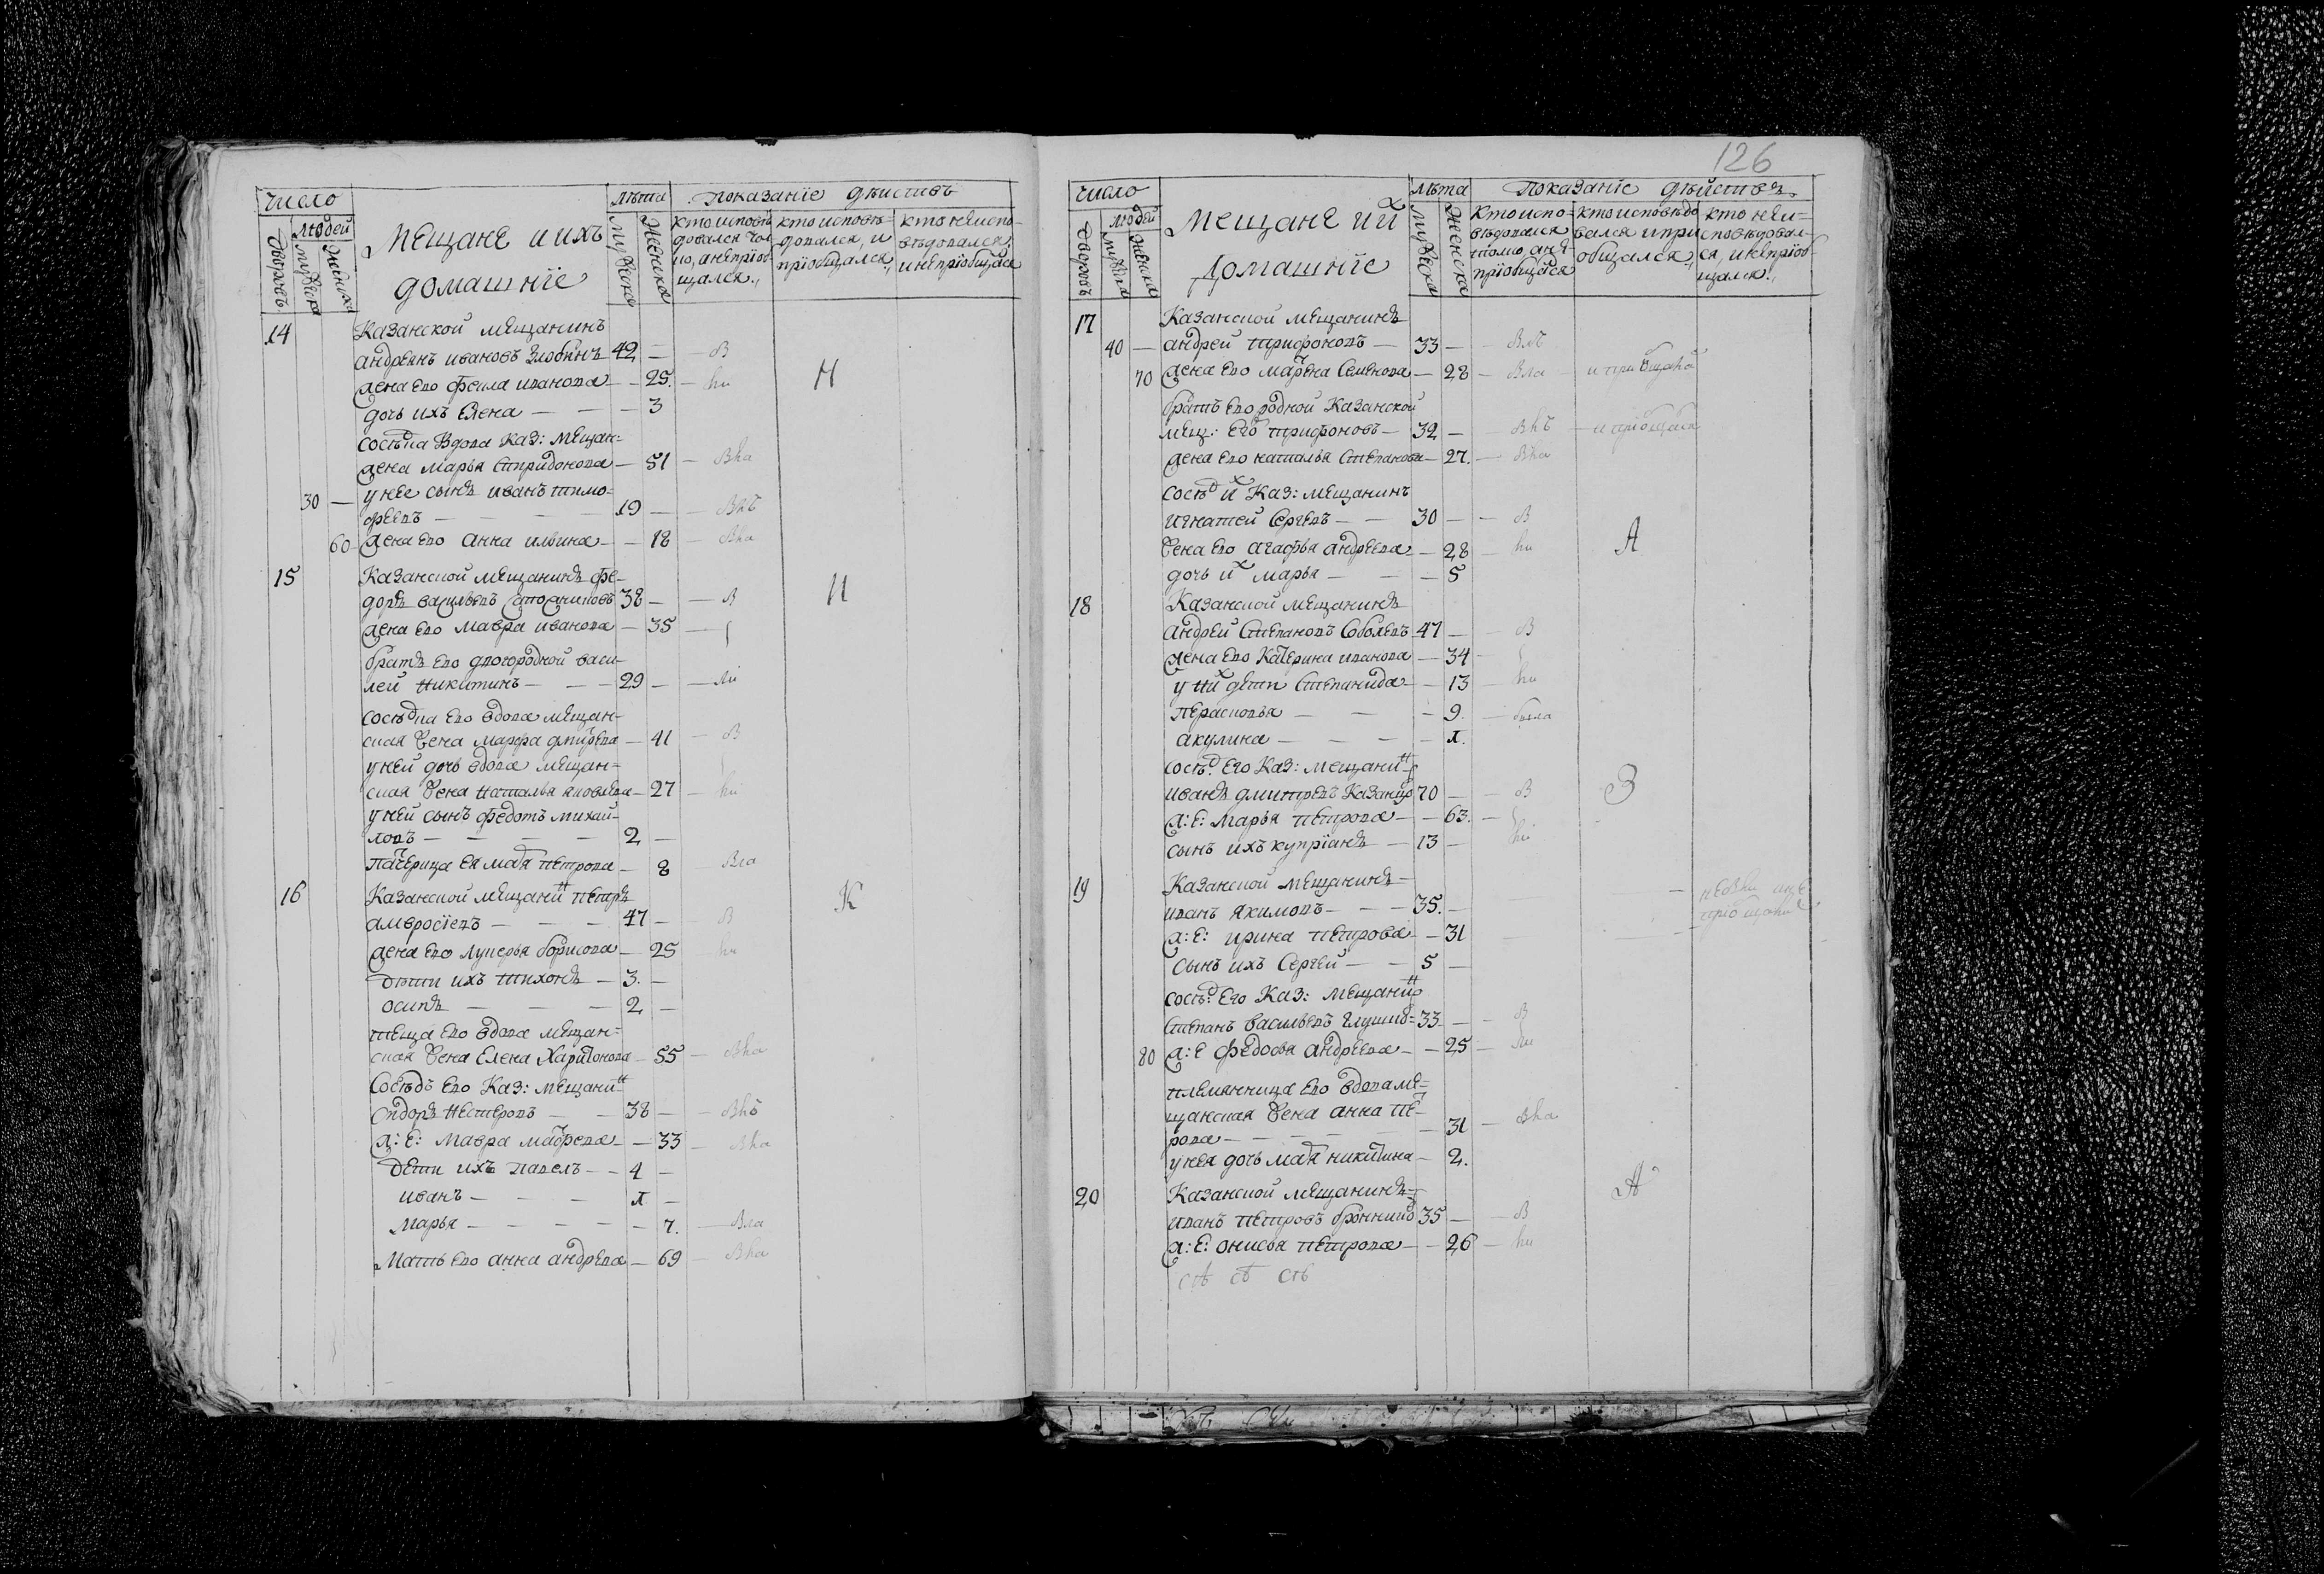 число
людей
дворовъ
мужеска
женска
мещане и ихъ
домашнïе
лѣта
мужеска
женска
показанïе дѣиствъ
кто исповѣ
довался тол
ко, а непрïоб
щался.,
кто исповѣ=
довался, и
прïобщался.,
кто неиспо-
вѣдовался,
и непрïобщался
14
Казанской мещанинъ
андреянъ ивановъ Злобинъ 42 — в
жена его Фекла иванова — 25. — ли Н
дочь ихъ Елена — — — 3
Вдова Каз: мещан=
жена марья спридонова — 51 — вла
30 — у нее сынъ иванъ тимо-
феевъ — — — 19 — — влъ
60 — жена его анна ильина — — 18 — вла
15 Казанской мещанинъ фе-
доръ васильевъ 38 — — в И
жена его мавра иванова — 35 —
братъ его двогородной васи-
лей никитинъ — — — 29 — — ли
его вдова мещан-
ская жена марфа — 41 — в
у ней дочь вдова мещан=
ская жена наталья яковлева — 27 — ли
у ней сынъ федотъ михай-
ловъ — — — — 2 —
падчерица ея петрова — 8 — вла
16 Казанской мещанинъ петръ К
амвросïевъ — — — 47 — — в
жена его лукерья борисова — 25 — ли
дѣти ихъ тихонъ — 3. —
осипъ — — — 2 —
теща его вдова мещан=
ская жена Елена Харитонова — 55 — вла
Сосѣдъ его Каз: мещанинъ
Сидоръ нестеровъ — — 38 — — влъ
ж: е: мавра — — 33 — вла
дети ихъ павелъ — — 4 —
иванъ — — — —
марья — — — — 7. — вла
мать его анна андреева — 69 — вла
126
число
людей
дворовъ
мужеска
женска
мещане их
домашнïе
лѣта
мужеска
женска
показанïе дѣйствъ
кто испо-
вѣдовался
толко а не
прïобщался
кто исповѣдо
вался и прï
общался.,
кто неи=
сповѣдовал-
ся, и непрïоб
щался.,
17 Казанской мещанинъ
40 — андрей трифоновъ — 33 — — влъ
70 жена его семенова — 28 — вла —
братъ его родной Казанской
мещ: трифоновъ — 32 — — влъ —
жена его наталья степанова — 27. — вла
сосѣд их Каз: мещанинъ
игнатей Сергевъ — — 30 — — в
жена его агафья андреева — 28 — ли А
дочь их марья — — — 5
18 Казанской мещанинъ
андрей степановъ Соболевъ 47 — — в
жена его катерина иванова — 34 —
у них дети степанида — 13 — ли
парасковья — — — 9. — была
акулина — — —
сосѣд: его Каз: мещанинъ
иванъ дмитревъ 70 — — в З
ж: е: марья петрова — — 63. —
сынъ ихъ купрïанъ — 13 — ли
19 Казанской мещанинъ —
иванъ якимовъ — — — 35. —
ж: е: ирина петрова — 31
сынъ ихъ Сергей — — 5 —
сосѣд: его Каз: мещанинъ
степанъ васильевъ 33 — — в
80 ж: е федосья андреева — — 25 — ли
племянница его вдова ме=
щанская жена анна пет-
рова — — — — 31 — вла
у нея дочь никитина — 2.
20 Казанской мещанинъ А
иванъ петровъ 35 — — в
ж: е: онисья петрова — — 26 — ли